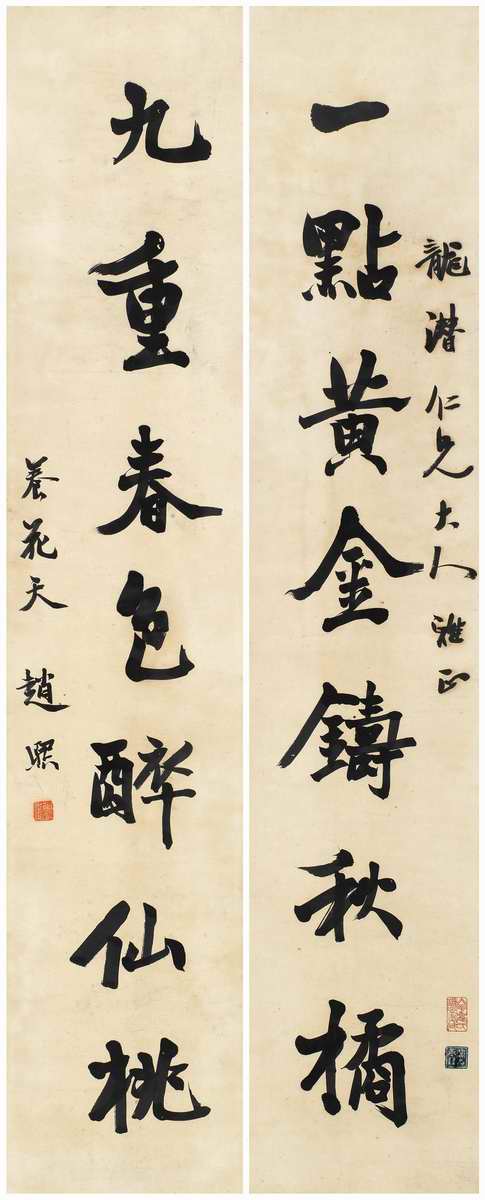 龍潛仁兄大人雅正
一點黃金鑄秋橘
九重春色醉仙桃
養花天 趙熙